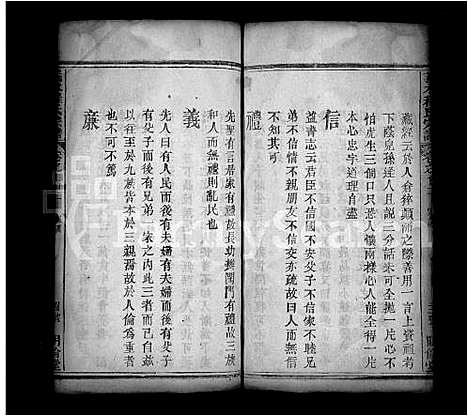 藏經云於人倉猝顛沛之際善用一言上資祖考
下蔭兒孫逢人且說三分話未可全拋一片心不
怕虎生三個口只恐人懷兩樣心人能全得一片
本心忠字道理自盡
信
益書志云君臣不信國不安父子不信家不睦兄
弟不信情不親朋友不信交亦疏故曰人而無信
不知其可
禮
先聖有言居家有禮故長幼辨閨門有禮故三族
和人而無禮則亂民也
義
先人曰有人民而後有夫婦有夫婦而後有父子
有父子而後有兄弟一家之內此三者而已矣自茲
以往至於九族皆本於三親焉故於人倫為重者
也不可不篤
廉
明倫堂